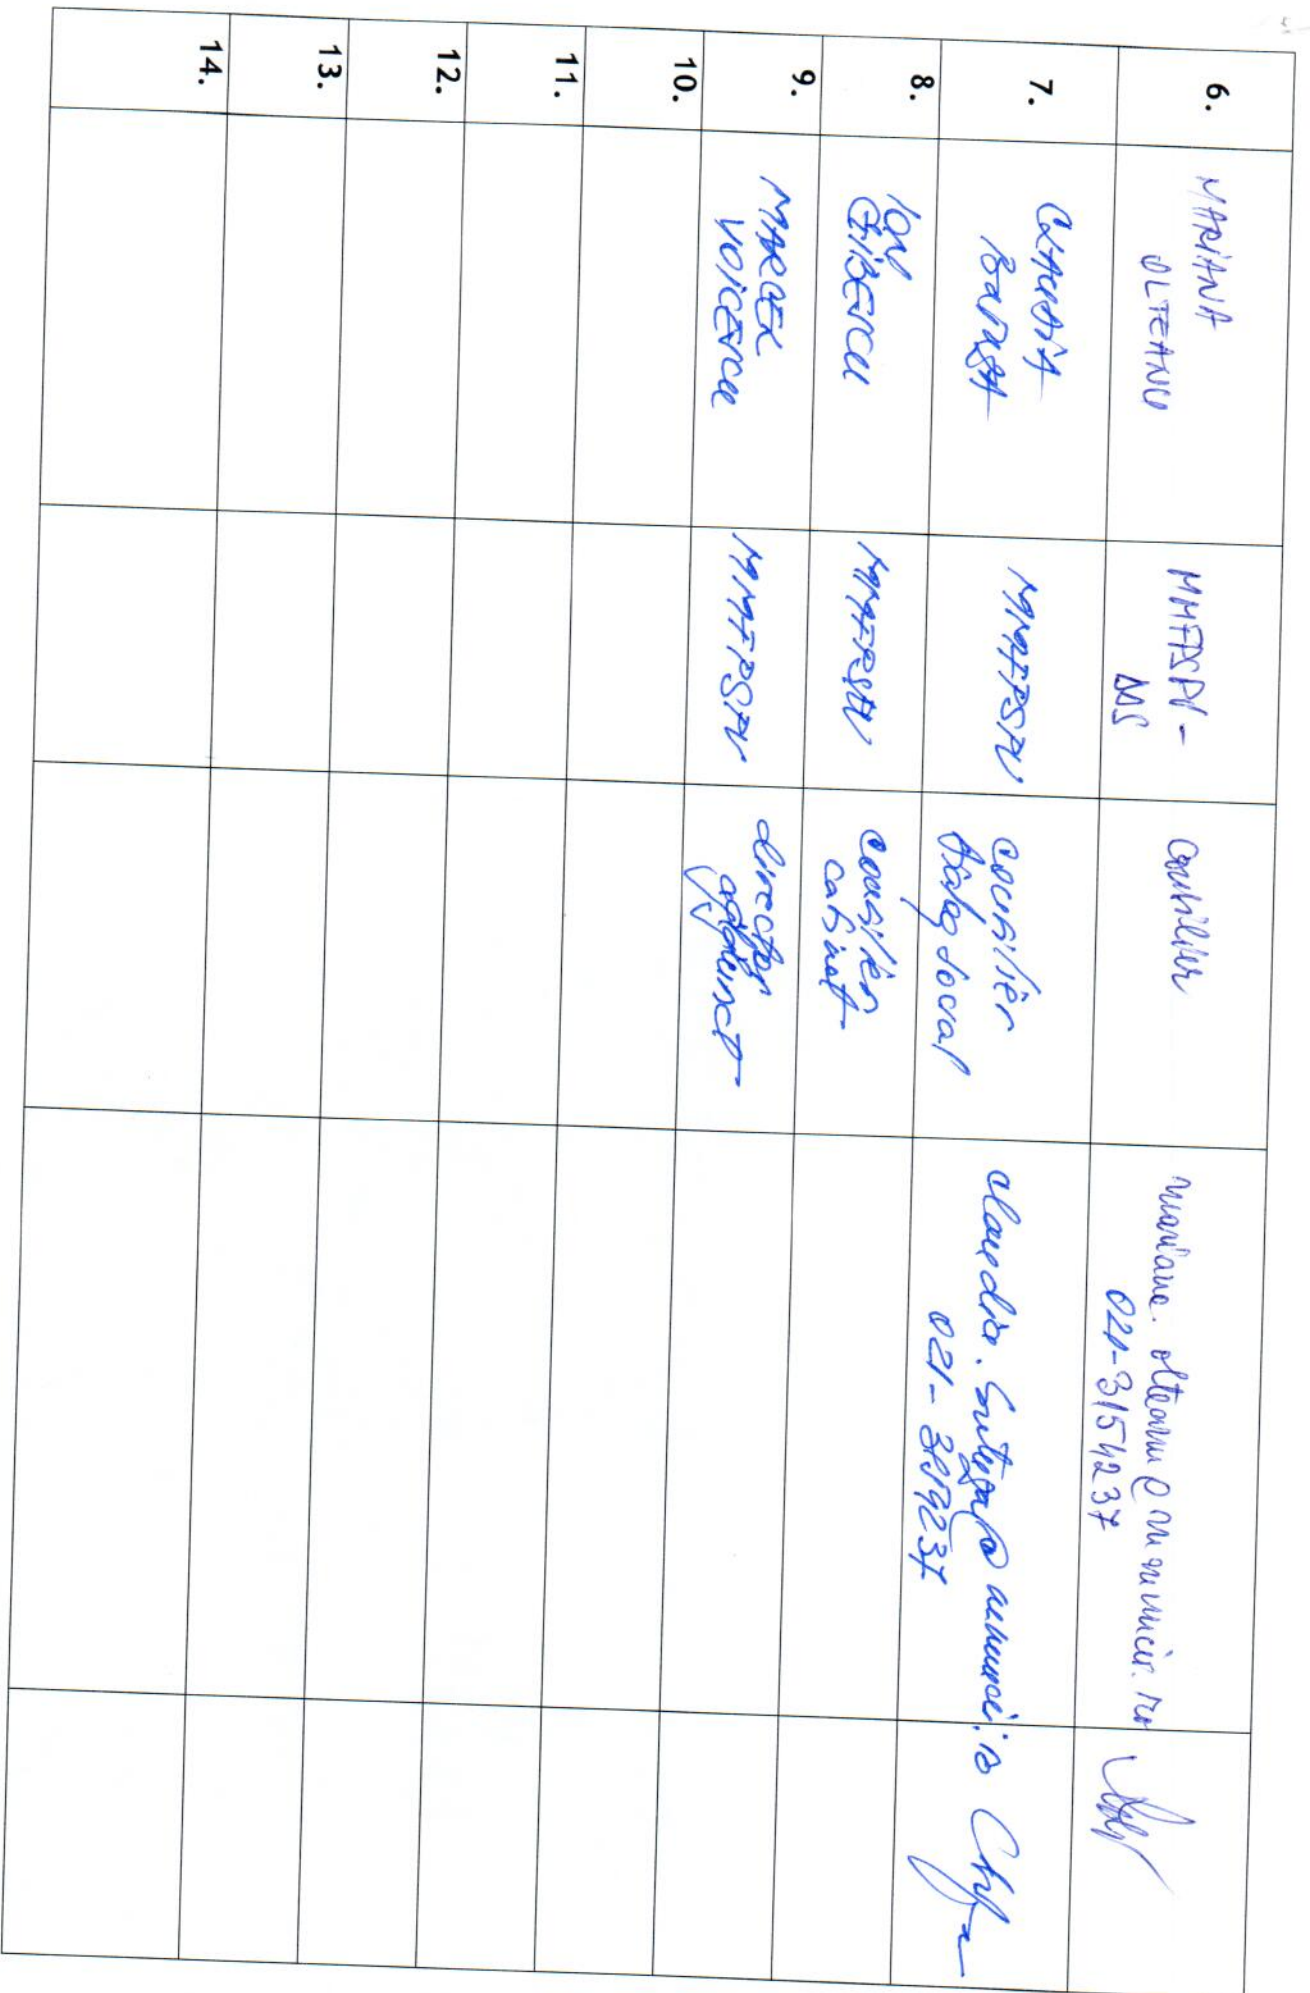 6. MARIANA OLTEANU MMFPSPV - DDS consilier mariana.olteanu@mmuncii.ro 021-3154237
7. CLAUDIA MMFPSPV consilier dialog social claudia. 021-
8. ION CIBESCU MMFPSPV consilier cabinet
9. MARCEL VOICESCU MMFPSPV director adjunct
10.
11.
12.
13.
14.